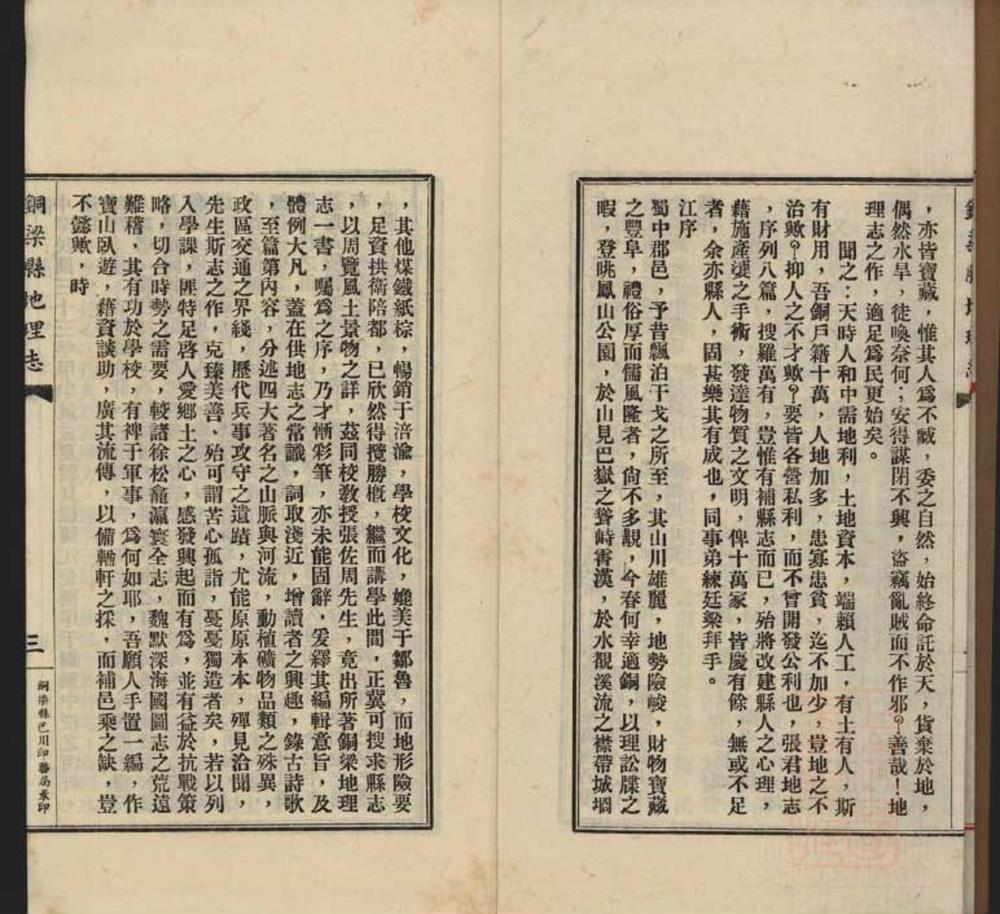 ，亦皆寶藏，惟其人爲不臧，委之自然，始終命託於天，貨棄於地，
偶然水旱，徒喚奈何；安得謀閉不興，盜竊亂賊而不作邪？善哉！地
理志之作，適足爲民更始矣。
聞之：天時人和中需地利，土地資本，端賴人工，有土有人，斯
有財用，吾銅戶籍十萬，人地加多，患寡患貧，迄不加少，豈地之不
治歟？抑人之不才歟？要皆各營私利，而不曾開發公利也，張君地志
，序列八篇，搜羅萬有，豈惟有補縣志而已，殆將改建縣人之心理，
藉施產業之手術，發達物質之文明，俾十萬家，皆慶有餘，無或不足
者，余亦縣人，固甚樂其有成也，同事弟練廷梁拜手。
江序
蜀中郡邑，予昔飄泊干戈之所至，其山川雄麗，地勢險峻，財物寶藏
之豐阜，禮俗厚而儒風隆者，尙不多覯，今春何幸適銅，以理訟牒之
暇，登眺鳳山公園，於山見巴嶽之聳峙霄漢，於水觀溪流之襟帶城堌
，其他煤鐵紙棕，暢銷于涪渝，學校文化，媲美于鄒魯，而地形險要
，足資拱衛陪都，已欣然得攬勝槪，繼而講學此間，正冀可搜求縣志
，以周覽風土景物之詳，茲同校敎授張佐周先生，竟出所著銅梁地理
志一書，囑爲之序，乃才慚彩筆，亦未能固辭，爰繹其編輯意旨，及
體例大凡，蓋在供地志之常識，詞取淺近，增讀者之興趣，錄古詩歌
，至篇第內容，分述四大著名之山脈與河流，動植礦物品類之殊異，
政區交通之界綫，歷代兵事攻守之遺蹟，尤能原原本本，殫見洽聞，
先生斯志之作，克臻美善、殆可謂苦心孤詣，戛戛獨造者矣，若以列
入學課，匪特足啓人愛鄉土之心，感發興起而有爲，並有益於抗戰策
略，切合時勢之需要，較諸徐松龕瀛寰全志，魏默深海國圖志之荒遠
難稽，其有功於學校，有裨于軍事，爲何如耶，吾願人手置一編，作
寶山臥遊，藉資談助，廣其流傳，以備輶軒之採，而補邑乘之缺，豈
不懿歟，時
銅梁縣地理志
三